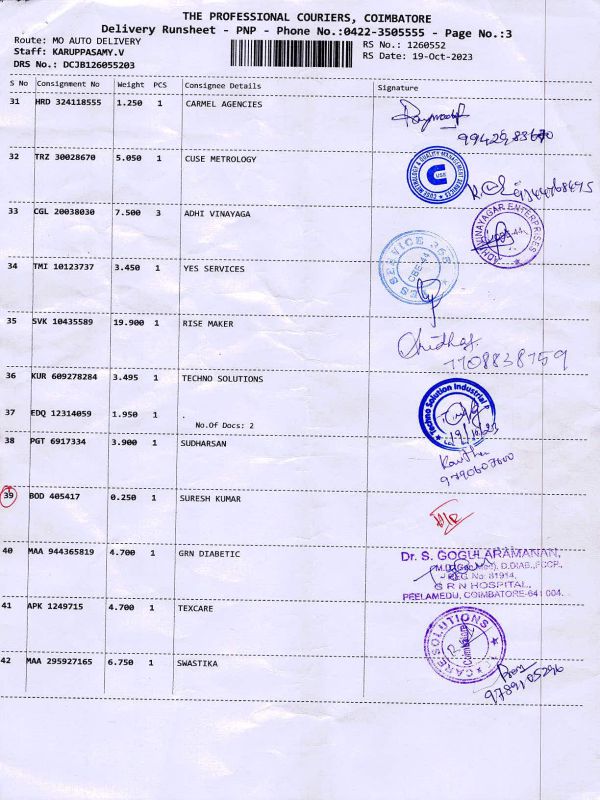 THE PROFESSIONAL COURIERS, COIMBATORE
Delivery Runsheet - PNP - Phone No.:0422-3505555 - Page No.:3
Route: MO AUTO DELIVERY
RS No.: 1260552
Staff: KARUPPASAMY.V
RS Date: 19-Oct-2023
DRS No.: DCJB126055203
S No Consignment No Weight PCS Consignee Details Signature
31 HRD 324118555 1.250 1 CARMEL AGENCIES
32 TRZ 30028670 5.050 1 CUSE METROLOGY
CUSE METROLOGY & QUALITY MANAGEMENT SERVICES
C USE
33 CGL 20038030 7.500 3 ADHI VINAYAGA
ADHI VINAYAGAR ENTERPRISES
34 TMI 10123737 3.450 1 YES SERVICES
CBE-44
35 SVK 10435589 19.900 1 RISE MAKER
7708838759
36 KUR 609278284 3.495 1 TECHNO SOLUTIONS
Techno Solution Industrial
19/10/23
37 EDQ 12314059 1.950 1 .
No.Of Docs: 2
38 PGT 6917334 3.900 1 SUDHARSAN
9790607600
39 BOD 405417 0.250 1 SURESH KUMAR
40 MAA 944365819 4.700 1 GRN DIABETIC
Dr. S. GOGULARAMANAN,
D.DIAB., FCCP.,
REG. No: 81914,
G R N HOSPITAL,
PEELAMEDU, COIMBATORE-641 004.
41 APK 1249715 4.700 1 TEXCARE
CARE SOLUTIONS
Coimbatore
42 MAA 295927165 6.750 1 SWASTIKA
97891 05296